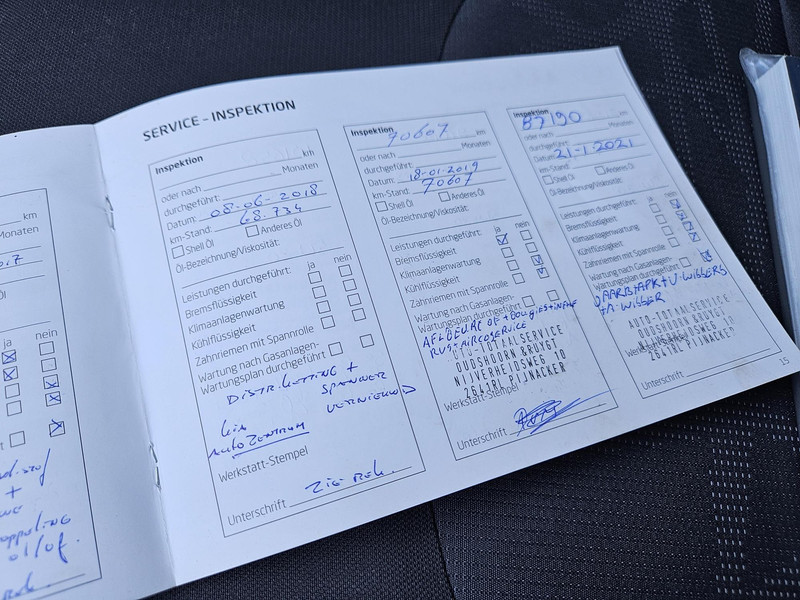 SERVICE – INSPEKTION
km
Monaten
Öl
ja
nein
Inspektion
km
oder nach
Monaten
durchgeführt:
Datum: 08-06-2018
km-Stand: 68.734
Shell Öl
Anderes Öl
Öl-Bezeichnung/Viskosität:
Leistungen durchgeführt: ja nein
Bremsflüssigkeit
Klimaanlagenwartung
Kühlflüssigkeit
Zahnriemen mit Spannrolle
Wartung nach Gasanlagen-
Wartungsplan durchgeführt
DISTR. KETTING +
SPANNER
VERNIEUWD
AUTO ZENTRUM
Werkstatt-Stempel
Unterschrift ZIE REK.
Inspektion 70607 km
oder nach
Monaten
durchgeführt:
Datum: 18-01-2019
km-Stand: 70607
Shell Öl
Anderes Öl
Öl-Bezeichnung/Viskosität:
Leistungen durchgeführt: ja nein
Bremsflüssigkeit
Klimaanlagenwartung
Kühlflüssigkeit
Zahnriemen mit Spannrolle
Wartung nach Gasanlagen-
Wartungsplan durchgeführt
+AIRCOSERVICE
AUTO-TOTAALSERVICE
OUDSHOORN & RUYGT
NIJVERHEIDSWEG 10
2641RL PIJNACKER
Werkstatt-Stempel
Unterschrift
Inspektion
87190 km
oder nach
Monaten
durchgeführt:
Datum: 21-1-2021
km-Stand:
Shell Öl
Anderes Öl
Öl-Bezeichnung/Viskosität:
Leistungen durchgeführt: ja nein
Bremsflüssigkeit
Klimaanlagenwartung
Kühlflüssigkeit
Zahnriemen mit Spannrolle
Wartung nach Gasanlagen-
Wartungsplan durchgeführt
+APK+V.WISSERS
+A.WISSER
AUTO-TOTAALSERVICE
OUDSHOORN & RUYGT
NIJVERHEIDSWEG 10
Werkstatt-Stempel
2641RL PIJNACKER
Unterschrift
15